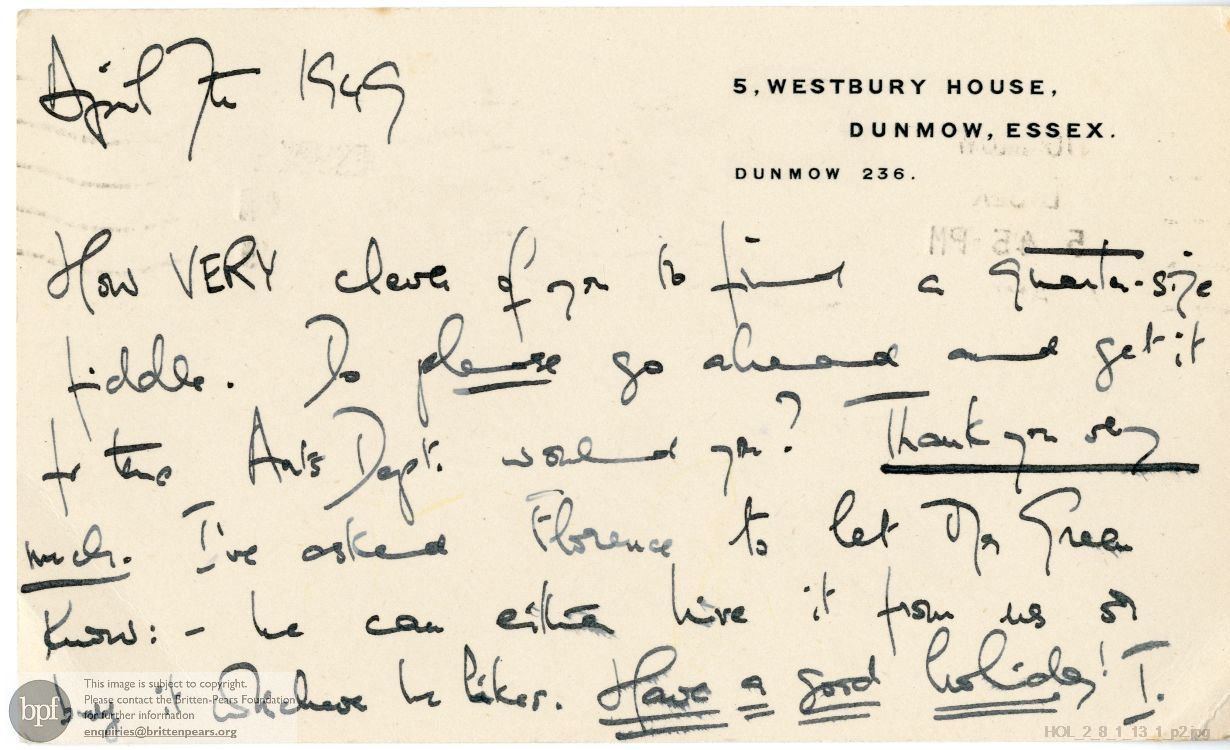 April 7th 1949
5, WESTBURY HOUSE,
DUNMOW, ESSEX.
DUNMOW 236.
How VERY clever of you to find a quarter-size
fiddle. Do please go ahead and get it
for the Arts Dept. would you? Thank you very
much. I've asked Florence to let Mr Green
know: - he can either hire it from us or
buy it whichever he likes. Have a good holiday! I.
5 45 PM
bpf
This image is subject to copyright.
Please contact the Britten-Pears Foundation
for further information
enquiries@brittenpears.org
HOL_2_8_1_13_1_p2.jpg